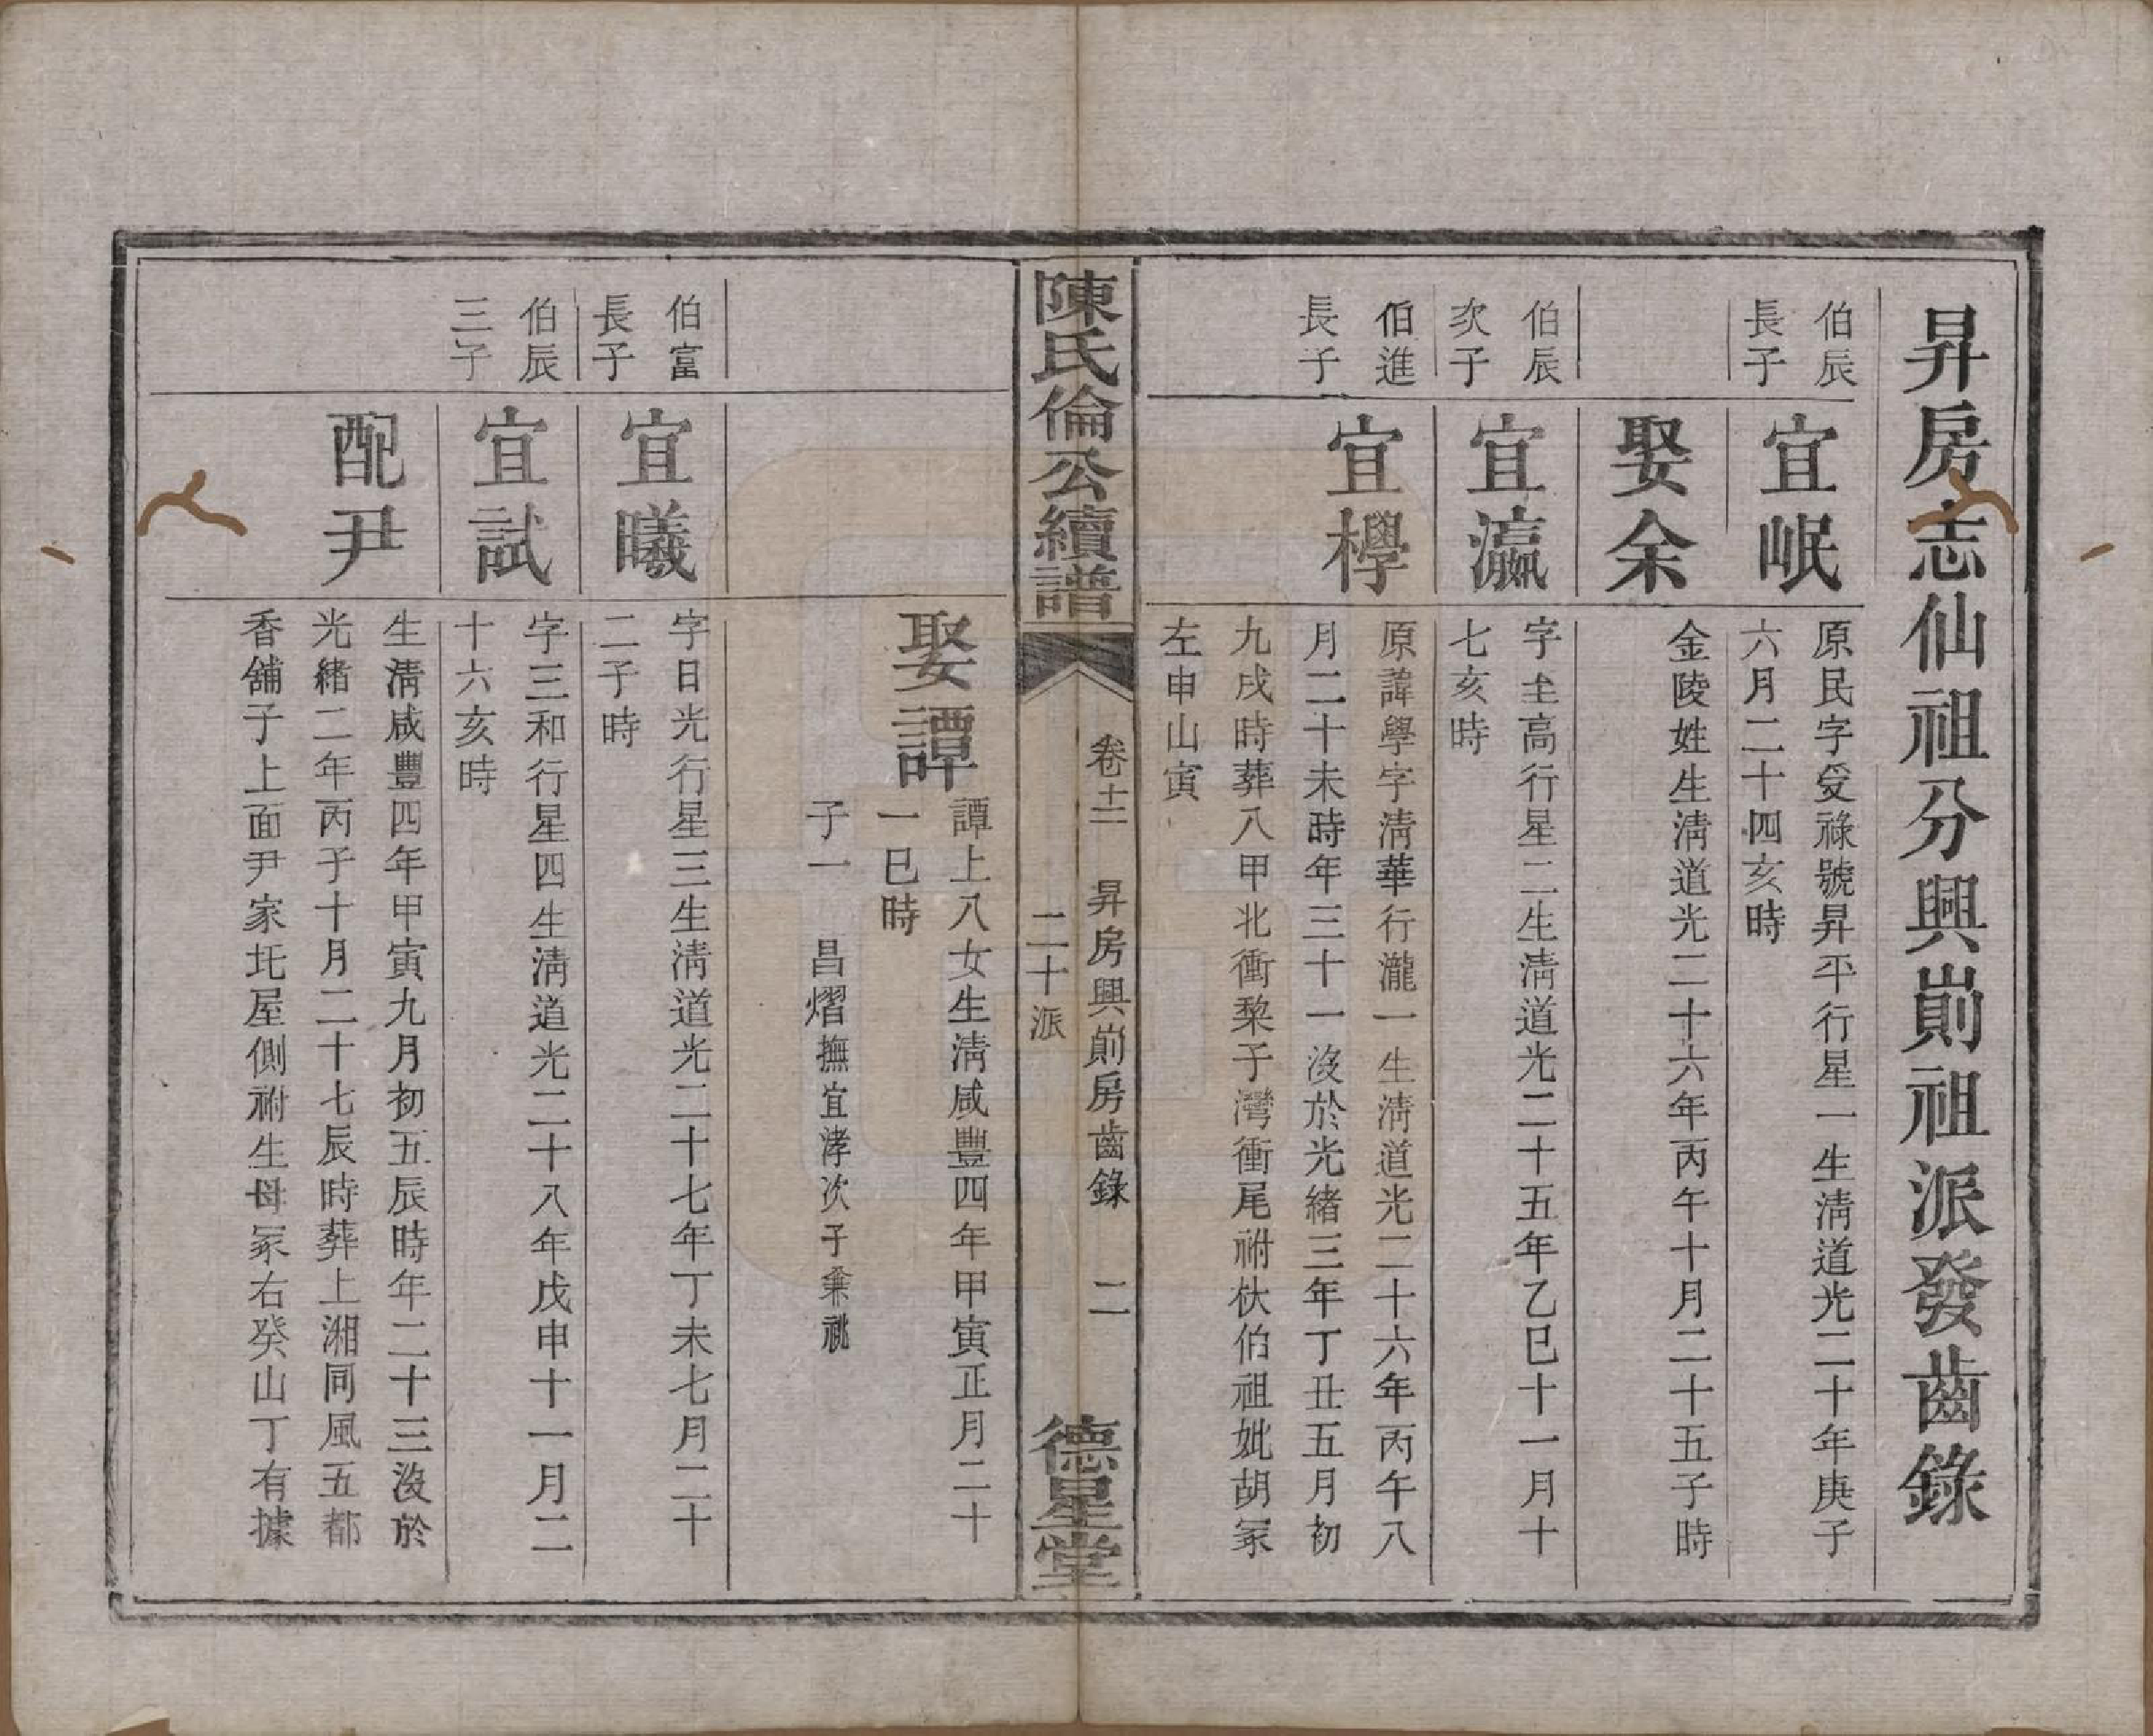 昇房志仙祖分興崱祖派發齒錄
伯辰
長子
宜岷
原民字受祿號昇平行星一生淸道光二十年庚子
六月二十四亥時
娶余
金陵姓生淸道光二十六年丙午十月二十五子時
伯辰
次子
宜瀛
字圭高行星二生淸道光二十五年乙巳十一月十
七亥時
伯進
長子
宜㰒
原諱學字淸華行瀧一生淸道光二十六年丙午八
月二十未時年三十一沒於光緒三年丁丑五月初
九戌時葬八甲北衝棃子灣衝尾祔杕伯祖妣胡冢
左申山寅
陳氏倫公續譜
卷十二 昇房興崱房齒錄 二
二十派
德星堂
娶譚
譚上八女生淸咸豐四年甲寅正月二十
一巳時
子一 昌熠撫宜涍次子兼祧
伯富
長子
宜曦
字日光行星三生淸道光二十七年丁未七月二十
二子時
伯辰
三子
宜試
字三和行星四生淸道光二十八年戊申十一月二
十六亥時
配尹
生淸咸豐四年甲寅九月初五辰時年二十三沒於
光緒二年丙子十月二十七辰時葬上湘同風五都
香舖子上面尹家圫屋側祔生母冢右癸山丁有據